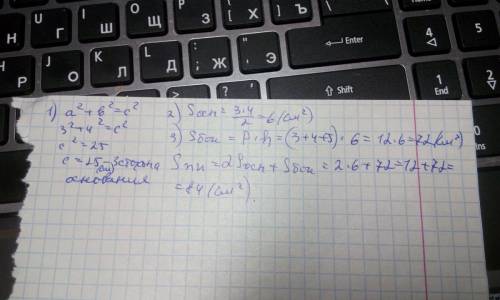 U Г
I Ш
O Щ
P З
{ [ Х
} ] Ъ
Enter
4
5
J О
K Л
L Д
: ; Ж
" ' Э
> .
? /
Shift
1 End
2
1) a² + b² = c²
3² + 4² = c²
c² = 25
c = 25 - 3 сторона
(см)
основания
2) Sосн = 3·4/2 = 6 (см²)
3) Sбок = P·h = (3+4+5)·6 = 12·6 = 72 (см²)
Sпп = 2Sосн + Sбок = 2·6 + 72 = 12 + 72 =
= 84 (см²).